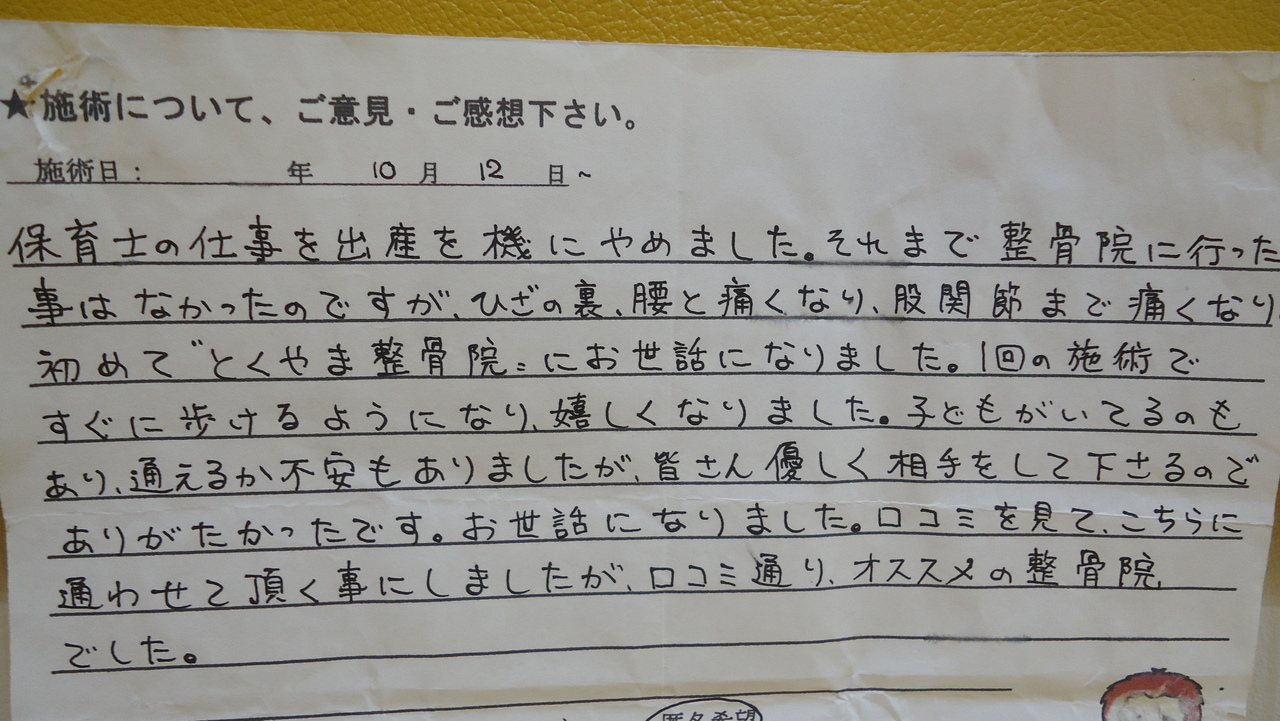 ★施術について、ご意見・ご感想下さい。
施術日: 年 10 月 12 日~
保育士の仕事を出産を機にやめました。それまで整骨院に行った
事はなかったのですが、ひざの裏、腰と痛くなり、股関節まで痛くなり、
初めて〝とくやま整骨院〟にお世話になりました。1回の施術で
すぐに歩けるようになり、嬉しくなりました。子どもがいてるのも
あり、通えるか不安もありましたが、皆さん優しく相手をして下さるので
ありがたかったです。お世話になりました。口コミを見て、こちらに
通わせて頂く事にしましたが、口コミ通り、オススメの整骨院
でした。
匿名希望